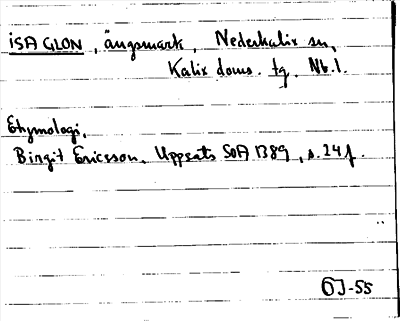 ISA GLON, ängsmark, Nederkalix sn,
Kalix doms. tg, Nb.l.
Etymologi,
Birgit Ericsson, Uppsats SOA 1389, s. 24 f.
ÖJ-55